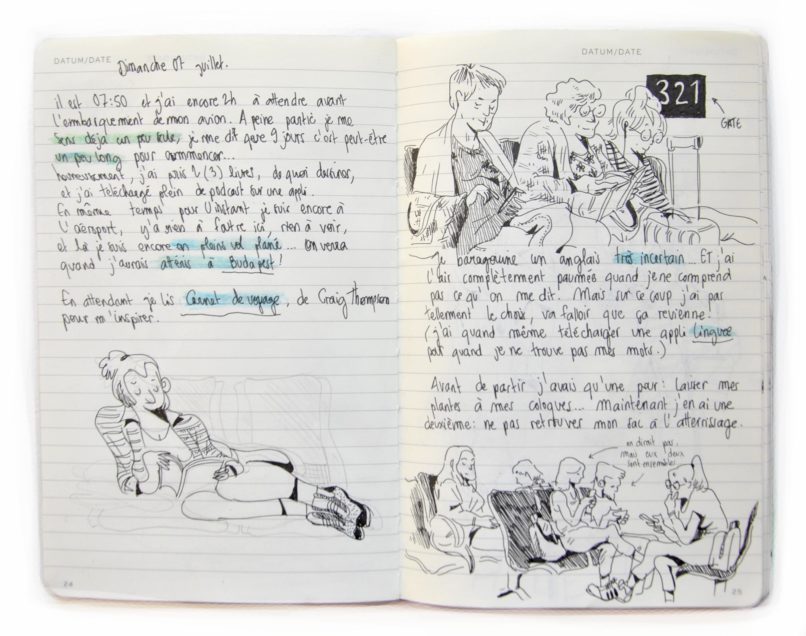 DATUM/DATE
Dimanche 07 juillet.
il est 07:50 et j'ai encore 2h à attendre avant
l'embarquement de mon avion. A peine partie je me
sens déjà un peu seule, je me dit que 9 jours c'est peut-être
un peu long pour commencer...
heureusement, j'ai pris 2 (3) livres, de quoi dessiner,
et j'ai téléchargé plein de podcast sur une appli.
En même temps pour l'instant je suis encore à
l'aéroport, y'a rien à faire ici, rien à voir,
et là je suis encore en plein vol plané... On verra
quand j'aurais atteris à Budapest!
En attendant je lis Carnet de voyage, de Craig Thompson
pour m'inspirer.
24
DATUM/DATE
321
GATE
Je baragouine un anglais très incertain... ET j'ai
l'air complètement paumée quand je ne comprend
pas ce qu'on me dit. Mais sur ce coup j'ai pas
tellement le choix, va falloir que ça revienne!
(j'ai quand même télécharger une appli linguee
pour quand je ne trouve pas mes mots.)
Avant de partir j'avais qu'une peur: laisser mes
plantes à mes colocs... Maintenant j'en ai une
deuxième: ne pas retrouver mon sac à l'atterrissage.
on dirait pas
mais eux deux
sont ensembles
25